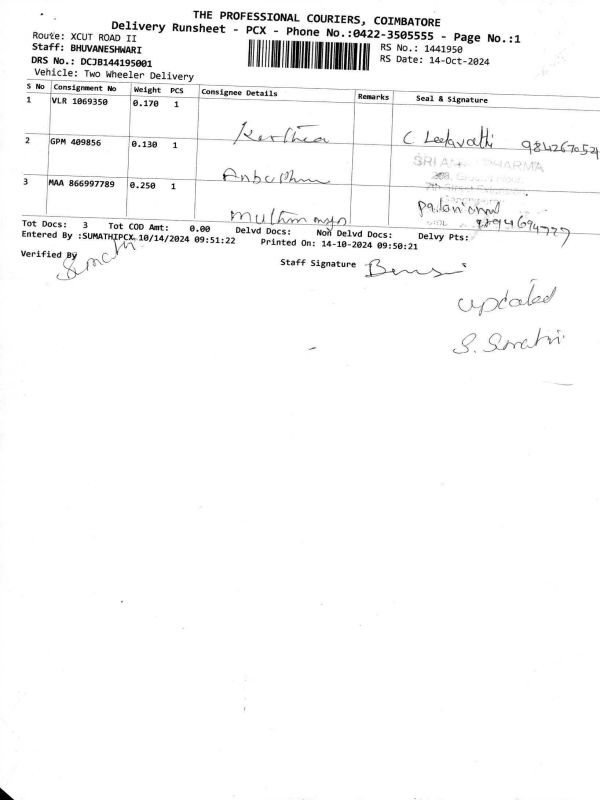 THE PROFESSIONAL COURIERS, COIMBATORE
Delivery Runsheet - PCX - Phone No.:0422-3505555 - Page No.:1
Route: XCUT ROAD II
Staff: BHUVANESHWARI
RS No.: 1441950
DRS No.: DCJB144195001
RS Date: 14-Oct-2024
Vehicle: Two Wheeler Delivery
S No Consignment No Weight PCS Consignee Details Remarks Seal & Signature
1 VLR 1069350 0.170 1
Kerthea C Leelavathi 984267052
2 GPM 409856 0.130 1
SRI PHARMA
3 MAA 866997789 0.250 1
9894694727
Tot Docs: 3 Tot COD Amt: 0.00 Delvd Docs: Non Delvd Docs: Delvy Pts:
Entered By :SUMATHIPCX 10/14/2024 09:51:22 Printed On: 14-10-2024 09:50:21
Verified By
Staff Signature
updated
S. Sumathi